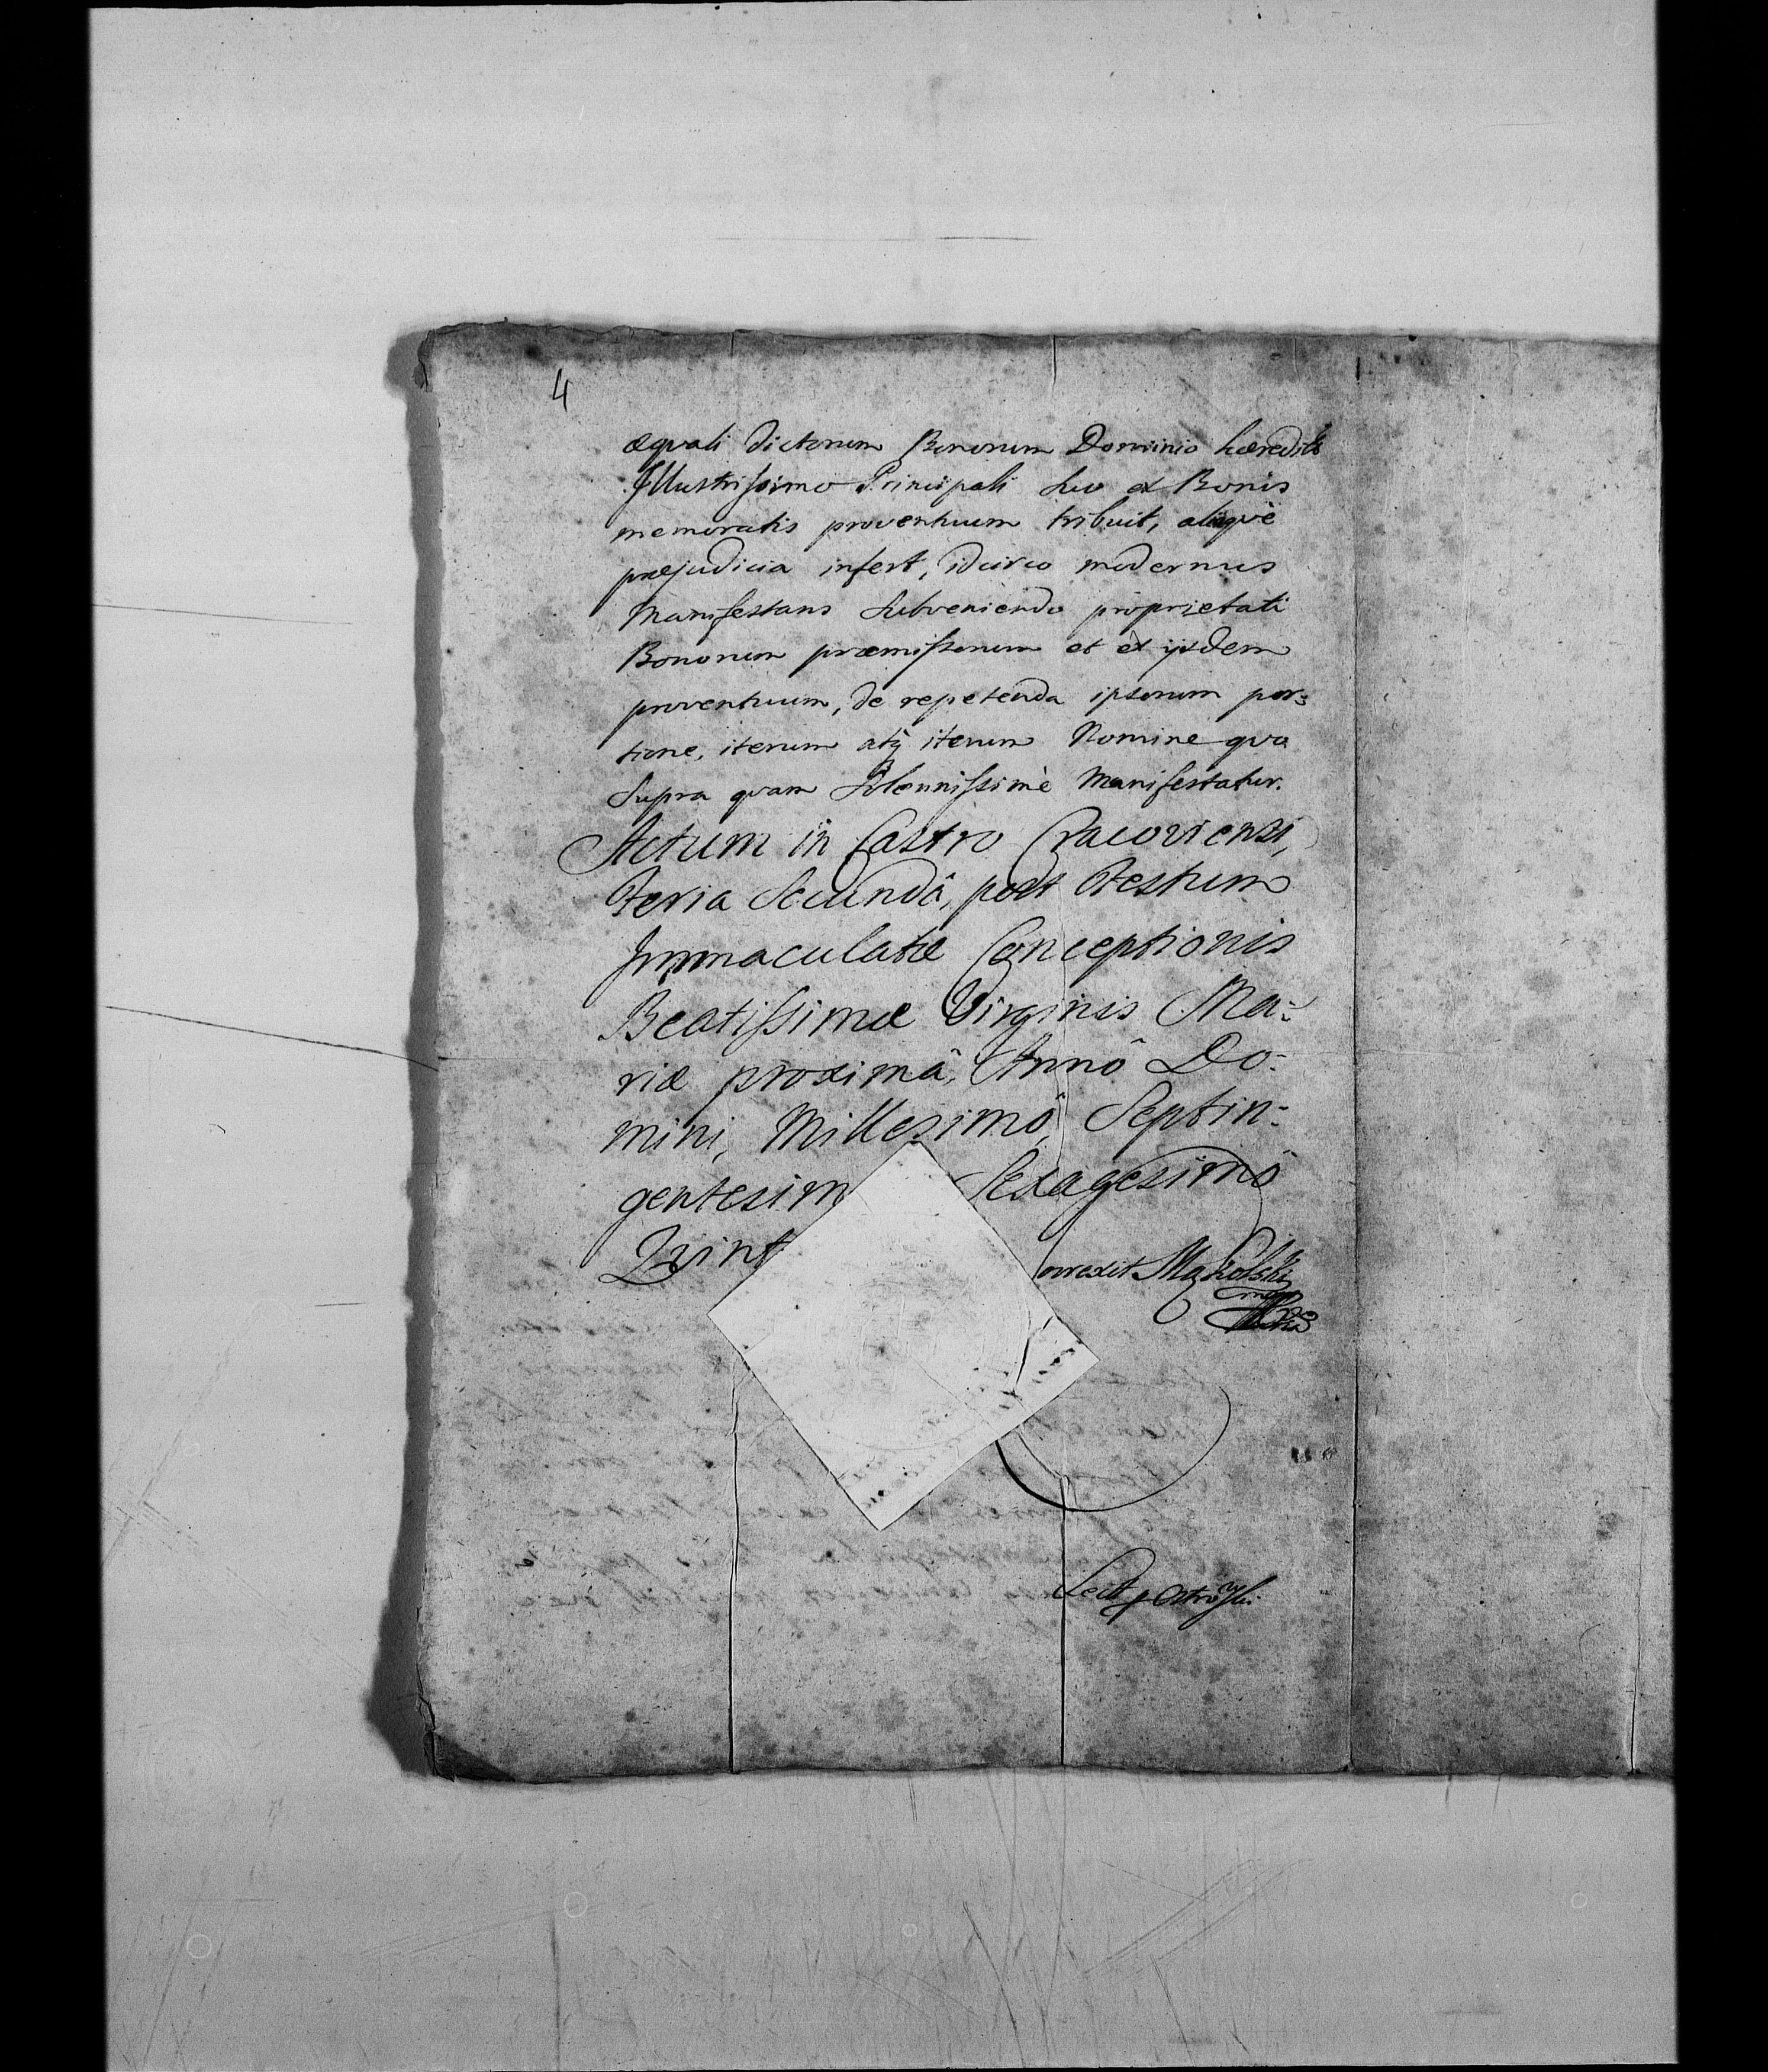 4
æquali dictorum Bonorum Dominio hæreditº
Illustrissimo Principali suo ex Bonis
memoratis proventuum tribuit, aliàquè
præjudicia infert, idcirco modernus
Manifestans Subveniendo proprietati
Bonorum præmissorum et ex ijsdem
proventuum, de repetenda ipsorum por:
tione, iterum atq iterum Nomine quo
Supra quam Solennissimè Manifestatur.
Actum in Castro Cracoviensi,
Feria Secundâ, post Festum
Immaculatæ Conceptionis
Beatissimæ Virginis Ma:
riæ proximâ, Annô Do:
mini, Millesimô, Septin:
gentesim Sexagesimô
Quint
orrexit
Lect p